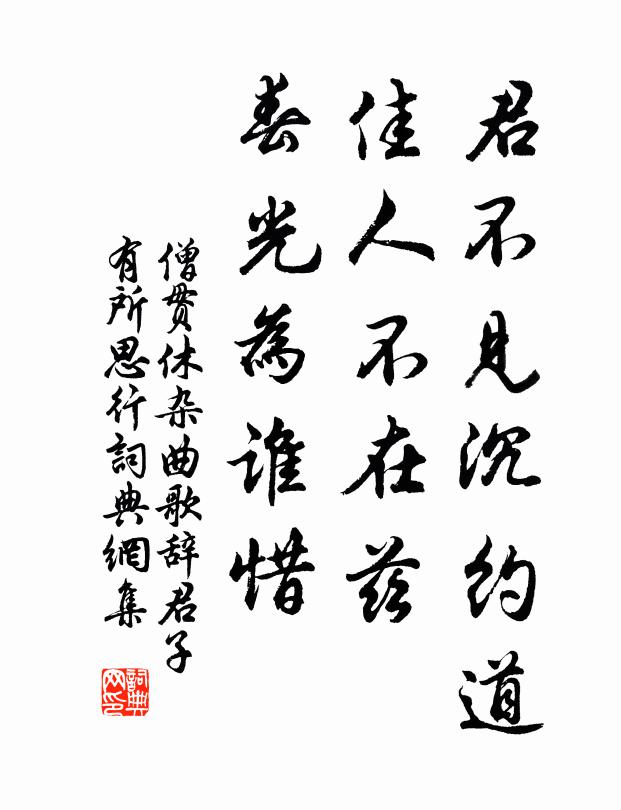 君不見沉約道
佳人不在茲
春光為誰惜
僧貫休杂曲歌辞君子
有所思行詞典網集
詞典网印